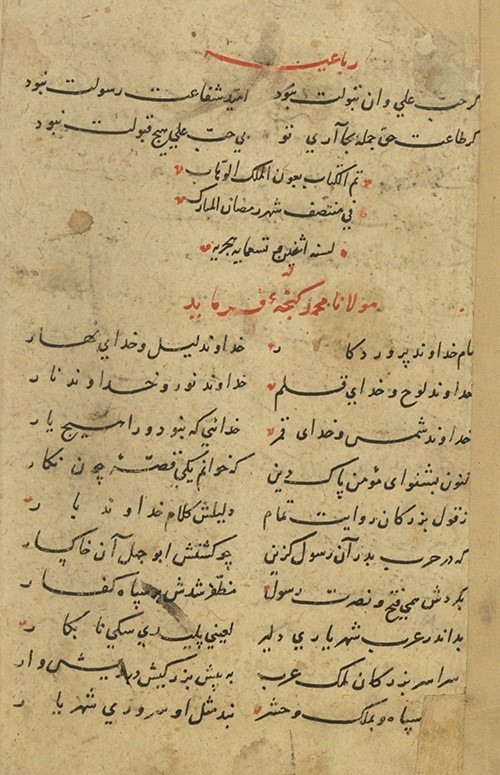 رباعیه
گر حبّ علی وآن نبولت نبود امید شفاعت رسولت نبود
گر طاعت حق جمله بجا آری تو بی حبّ علی هیچ قبولت نبود
تم الکتاب بعون الملک الوهّاب
فی منتصف شهر رمضان المبارک
لسنه اثنین و تسعمایه هجریه
مولانا محمد کنجه فرماید
بنام خداوند پروردکار خداوند لیل و خدای نهار
خداوند لوح و خدای قلم خداوند نور و خداوند نار
خداوند شمس و خدای قمر خدائی که نبود ورا هیچ یار
کنون بشنو ای مؤمن پاک دین که خوانم یکی قصّهٔ چون نکار
ز قول بزرکان روایت تمام دلیلش کلام خداوند بار
که در حرب بدر آن رسول کزین چو کشتش ابوجهل آن خاکسار
بکردش همی فتح و نصرت رسول مظفّر شدش بر سپاه کفار
بد اندر عرب شهریاری دلیر لعینی پلیدی سکی نابکار
سراسر بزرکان ملک عرب به پیش بزرکیش درویش وار
سپاه و بملک و حشر نبد مثل او سروری شهریار